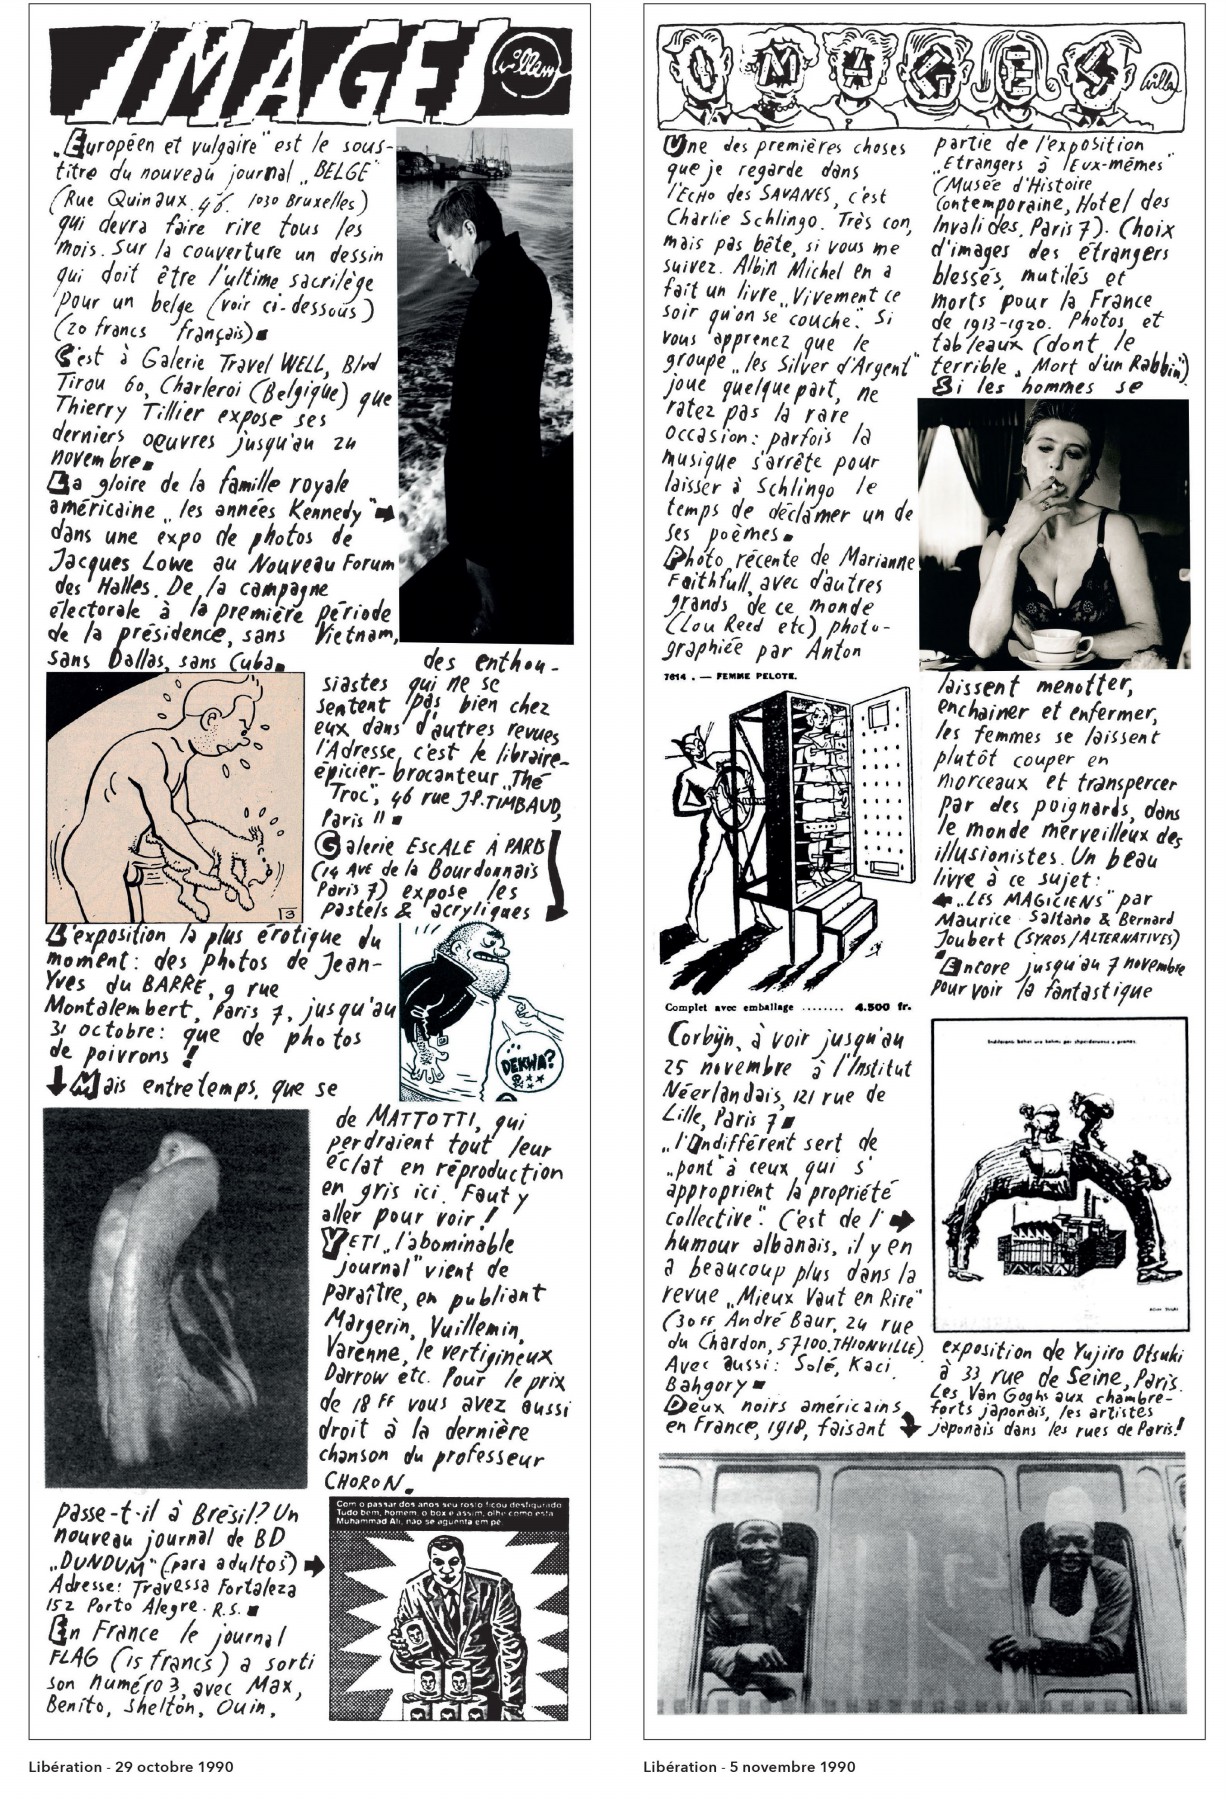 IMAGES
Willem
„Européen et vulgaire" est le sous-
titre du nouveau journal „BELGE"
(Rue Quinaux 46. 1030 Bruxelles)
qui devra faire rire tous les
mois. Sur la couverture un dessin
qui doit être l'ultime sacrilège
pour un belge (voir ci-dessous)
(20 francs français)
C'est à Galerie Travel WELL, Blvd
Tirou 60, Charleroi (Belgique) que
Thierry Tillier expose ses
derniers oeuvres jusqu'au 24
novembre
La gloire de la famille royale
américaine „les années Kennedy"
dans une expo de photos de
Jacques Lowe au Nouveau Forum
des Halles. De la campagne
électorale à la première période
de la présidence, sans Vietnam,
sans Dallas, sans Cuba
13
L'exposition la plus érotique du
moment: des photos de Jean-
Yves du BARRE, 9 rue
Montalembert, Paris 7, jusqu'au
31 octobre: que de photos
de poivrons!
Mais entretemps, que se
passe-t-il à Brésil? Un
nouveau journal de BD
„DUNDUM" (para adultos)
Adresse: Travessa Fortaleza
152 Porto Alegre. R.S.
En France le journal
FLAG (15 francs) a sorti
son numéro 3, avec Max,
Benito, Shelton, Ouin,
des enthou-
siastes qui ne se
sentent pas bien chez
eux dans d'autres revues
l'Adresse, c'est le libraire-
épicier-brocanteur „Thé
Troc", 46 rue J.P. TIMBAUD,
Paris 11
Galerie ESCALE À PARIS
(14 AVE de la Bourdonnais
Paris 7) expose les
pastels & acryliques
DEKWA?
de MATTOTTI, qui
perdraient tout leur
éclat en réproduction
en gris ici. Faut y
aller pour voir!
YETI „l'abominable
journal" vient de
paraître, en publiant
Margerin, Vuillemin,
Varenne, le vertigineux
Darrow etc. Pour le prix
de 18 FF vous avez aussi
droit à la dernière
chanson du professeur
CHORON.
Com o passar dos anos seu rosto ficou desfigurado
Tudo bem, homem, o box e assim, olhe como esta
Muhammad Ali, não se aguenta em pé.
Libération - 29 octobre 1990
IMAGES
Willem
Une des premières choses
que je regarde dans
l'ECHO des SAVANES, c'est
Charlie Schlingo. Très con,
mais pas bête, si vous me
suivez. Albin Michel en a
fait un livre „Vivement ce
soir qu'on se couche". Si
vous apprenez que le
groupe „les Silver d'Argent"
joue quelque part, ne
ratez pas la rare
occasion: parfois la
musique s'arrête pour
laisser à Schlingo le
temps de déclamer un de
ses poèmes
Photo récente de Marianne
Faithfull, avec d'autres
grands de ce monde
(Lou Reed etc) photo-
graphiée par Anton
7614 . — FEMME PELOTE.
Complet avec emballage ........ 4.500 fr.
Corbijn, à voir jusqu'au
25 novembre à l'Institut
Néerlandais, 121 rue de
Lille, Paris 7
„l'Indifférent sert de
„pont" à ceux qui s'
approprient la propriété
collective". C'est de l'
humour albanais, il y en
a beaucoup plus dans la
revue „Mieux Vaut en Rire"
(30 FF André Baur, 24 rue
du Chardon, 57100, THIONVILLE)
Avec aussi: Solé, Kaci,
Bahgory
Deux noirs américains
en France, 1918, faisant
partie de l'exposition
„Etrangers à Eux-mêmes"
(Musée d'Histoire
Contemporaine, Hotel des
Invalides, Paris 7). Choix
d'images des étrangers
blessés, mutilés et
morts pour la France
de 1913-1920. Photos et
tableaux (dont le
terrible „Mort d'un Rabbin")
Si les hommes se
laissent menotter,
enchainer et enfermer,
les femmes se laissent
plutôt couper en
morceaux et transpercer
par des poignards, dans
le monde merveilleux des
illusionistes. Un beau
livre à ce sujet:
„LES MAGICIENS" par
Maurice Saltano & Bernard
Joubert (SYROS/ALTERNATIVES)
Encore jusqu'au 7 novembre
pour voir la fantastique
exposition de Yujiro Otsuki
à 33 rue de Seine, Paris.
Les Van Goghs aux chambre-
forts japonais, les artistes
japonais dans les rues de Paris!
Libération - 5 novembre 1990